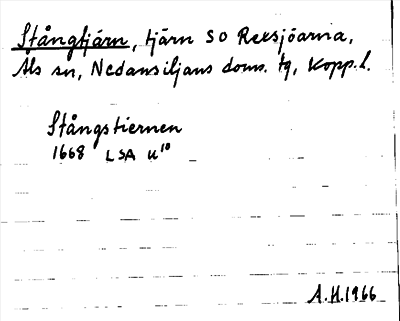 Stångtjärn, tjärn SO Rexsjöarna,
Åls sn, Nedansiljans doms. tg, Kopp.l.
Stångstiernen
1668 LSA U10
A.H.1966